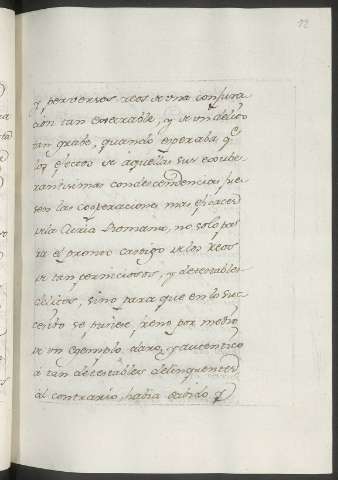 12
y perversos reos de una conjura
cion tan execrable, y de un delito
tan grabe, quando esperaba q.e
los efectos de aquellas sus exube
rantisimas condescendencias fue
sen las cooperaciones mas eficaces
de la Curia Romana, no solo pa
ra el pronto castigo de los reos
de tan perniciosos, y detestables
delitos, sino para que en lo suc
cesibo se pusiese freno por medio
de un exemplo claro, y autentico
a tan detestables delinquentes
al contrario, habia sabido q.e